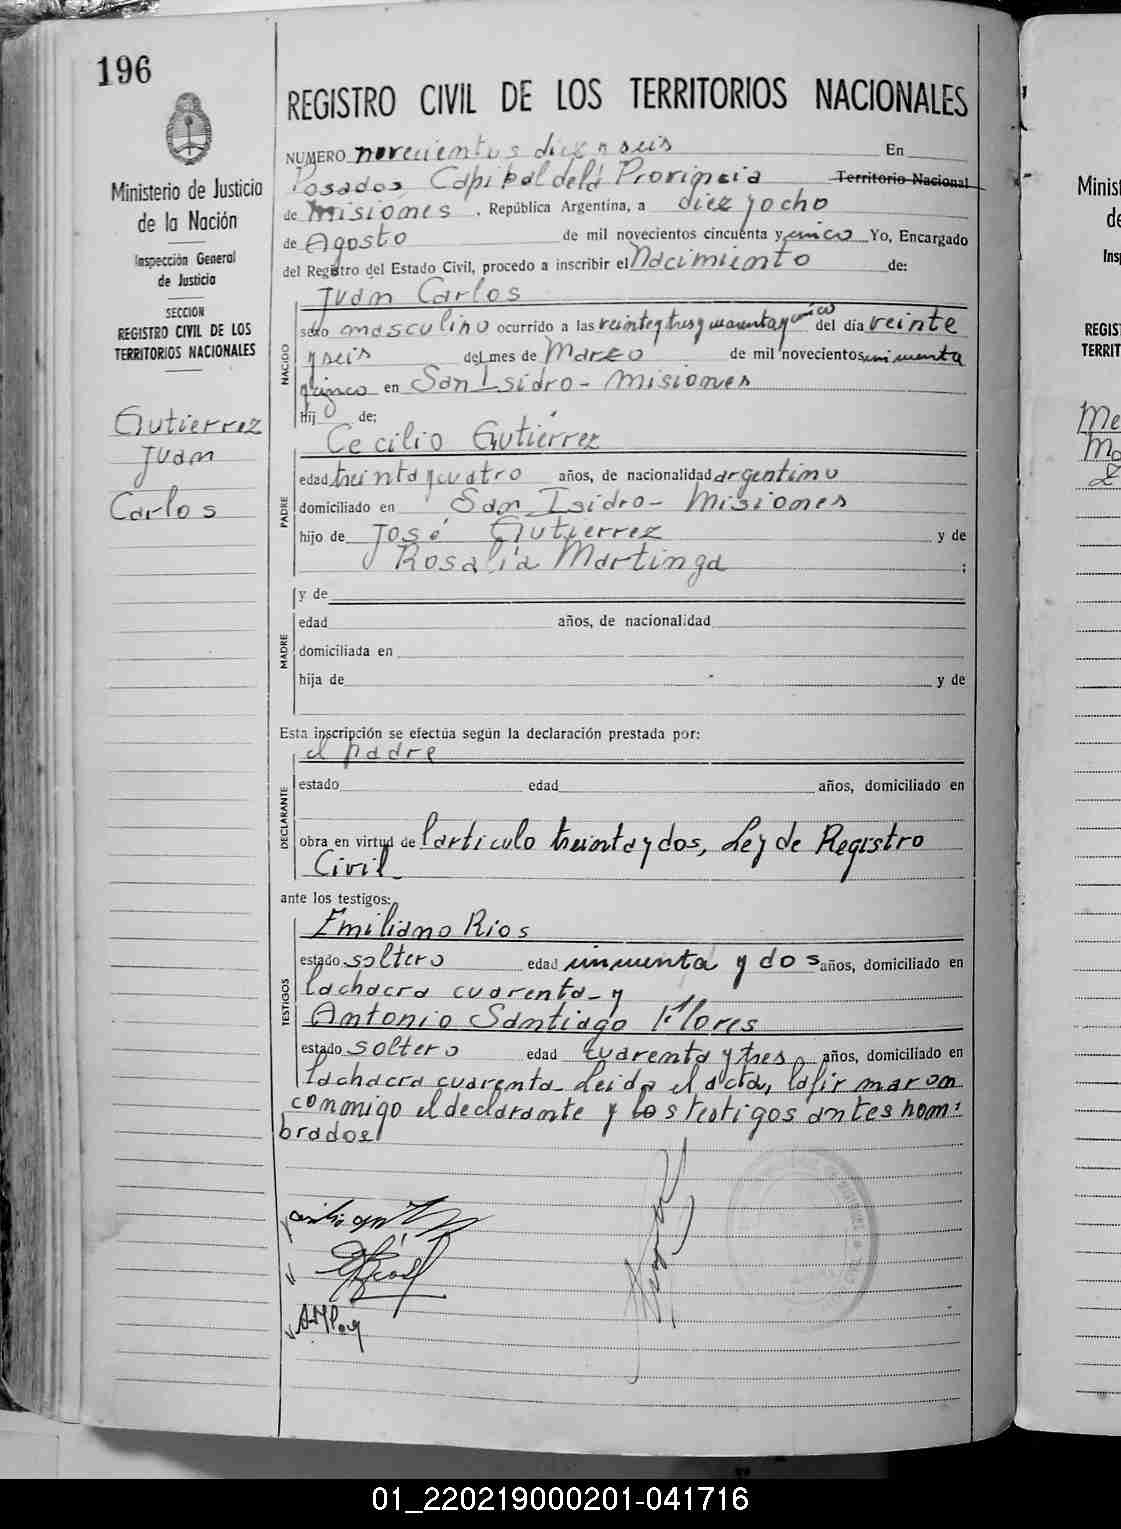 196
REGISTRO CIVIL DE LOS TERRITORIOS NACIONALES
Ministerio de Justicia
de la Nación
Inspección General
de Justicia
SECCIÓN
REGISTRO CIVIL DE LOS
TERRITORIOS NACIONALES
Gutierrez
Juan
Carlos
NUMERO novecientos diez y seis En
Posadas Capital de la Provincia Territorio Nacional
de Misiones, República Argentina, a diez y ocho
de Agosto de mil novecientos cincuenta y cinco Yo, Encargado
del Registro del Estado Civil, procedo a inscribir el Nacimiento de:
Juan Carlos
NACIDO
sexo masculino ocurrido a las veinte y tres y cuarenta y cinco del día veinte
y seis del mes de Marzo de mil novecientos cincuenta
y cinco en San Isidro - Misiones
Hij de:
Cecilio Gutierrez
PADRE
edad treinta y cuatro años, de nacionalidad argentino
domiciliado en San Isidro - Misiones
hijo de José Gutierrez y de
Rosalia Martinga ;
y de
MADRE
edad años, de nacionalidad
domiciliada en
hija de y de
Esta inscripción se efectúa según la declaración prestada por:
el padre
DECLARANTE
estado edad años, domiciliado en
obra en virtud del articulo treinta y dos, Ley de Registro
Civil-
ante los testigos:
Emiliano Rios
TESTIGOS
estado soltero edad cincuenta y dos años, domiciliado en
la chacra cuarenta - y
Antonio Santiago Flores
estado soltero edad cuarenta y tres años, domiciliado en
la chacra cuarenta - Leida el acta, la firmaron
conmigo el declarante y los testigos antes nom-
brados
Minist
de
Ins
REGIST
TERRIT
Me
01_220219000201-041716